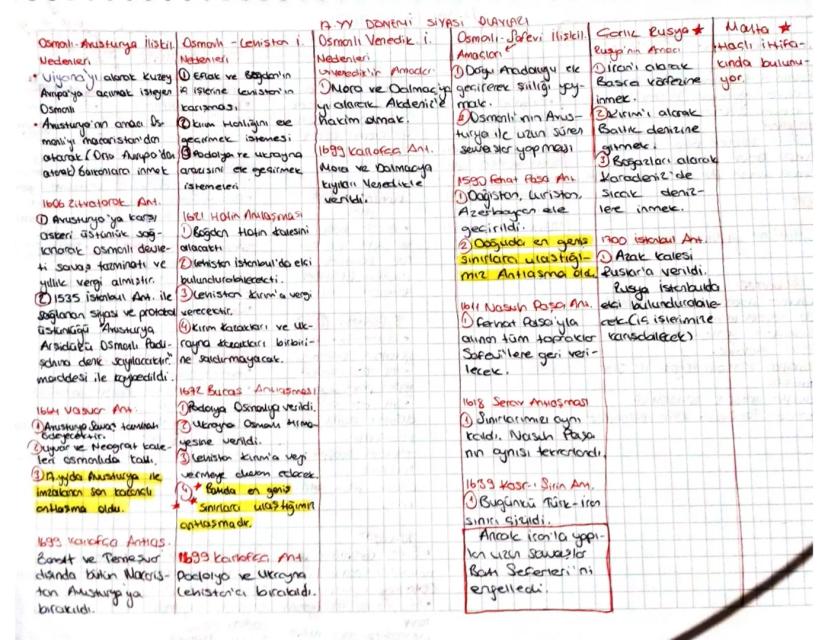 17. YY DÖNEMİ SİYASİ OLAYLARI
Osmanlı-Avusturya İlişkil.
Nedenleri
• Viyana'yı alarak Kuzey
Avrupa'ya açılmak isteyen
Osmanlı
• Avusturya'nın amacı Os-
manlı'yı macaristan'dan
atarak (Orta Avrupa'dan
atarak) balkanlara inmek
1606 Zitvatorok Ant.
① Avusturya'ya karşı
askeri üstünlük sağ-
lanarak osmanlı devle-
ti savaş tazminatı ve
yıllık vergi almıştır.
② 1535 istanbul Ant. ile
sağlanan siyasi ve protokol
üstünlüğü "Avusturya
Arşidükü Osmanlı Padi-
şahına denk sayılacaktır."
maddesi ile kaybedildi.
1664 Vasvar Ant.
① Avusturya Savaş tazminatı
ödeyecektir.
② Uyvar ve Neograt kale-
leri osmanlıda kaldı.
③ 17.yyda Avusturya ile
imzalanan son kazançlı
antlaşma oldu.
1699 Karlofça Antlaş.
Banat ve Temeşvar
dışında bütün Macaris-
tan Avusturya'ya
bırakıldı.
Osmanlı - Lehistan i.
Nedenleri
① Eflak ve Boğdan'ın
iç işlerine Lehistan'ın
karışması
② Kırım Hanlığını ele
geçirmek istemesi
③ Podolya ve Ukrayna
arazisini ele geçirmek
istemeleri
1621 Hotin Antlaşması
① Boğdan Hotin kalesini
alacaktı
② Lehistan istanbul'da elçi
bulundurabilecekti.
③ Lehistan Kırım'a vergi
verecektir.
④ Kırım Kazakları ve Uk-
rayna Kazakları birbiri-
ne saldırmayacak.
1672 Bucaş Antlaşması
① Podolya Osmanlıya verildi.
② Ukrayna Osmanlı hima-
yesine verildi.
③ Lehistan Kırım'a vergi
vermeye devam edecek
④ * Batıda en geniş
* sınırlara ulaştığımız
antlaşmadır.
1699 Karlofça Ant.
Podolya ve Ukrayna
Lehistan'a bırakıldı.
Osmanlı Venedik i.
Nedenleri
Venedik'in Amaçları
① Mora ve Dalmaçya
yı alarak Akdeniz'e
hakim olmak.
1699 Karlofça Ant.
Mora ve Dalmaçya
kıyıları Venedikle
verildi.
Osmanlı-Safevi ilişkil.
Amaçları
① Doğu Anadoluyu ele
geçirerek şiiliği yay-
mak.
② Osmanlı'nın Avus-
turya ile uzun süren
savaşlar yapması
1590 Ferhat Paşa Ant.
① Dağıstan, Luristan,
Azerbaycan ele
geçirildi.
② Doğuda en geniş
sınırlara ulaştığı-
mız Antlaşma oldu.
1611 Nasuh Paşa Ant.
① Ferhat Paşa'yla
alınan tüm topraklar
Safevi'lere geri veri-
lecek.
1618 Serav Antlaşması
① Sınırlarımız aynı
kaldı. Nasuh Paşa
nın aynısı tekrarlandı.
1639 Kasr-ı Şirin Ant.
① Bugünkü Türk-iran
sınırı çizildi.
Ancak iran'la yapı-
lan uzun savaşlar
Batı Seferleri'ni
engelledi.
Çarlık Rusya ★
Rusya'nın Amacı
① iran'ı alarak
Basra körfezine
inmek.
② Kırım'ı alarak
Baltık denizine
girmek.
③ Boğazları alarak
Karadeniz'de
sıcak deniz-
lere inmek.
1700 istanbul Ant.
① Azak kalesi
Ruslar'a verildi.
Rusya istanbulda
elçi bulundurabile-
cek (iç işlerimize
karışabilecek)
Malta ★
Haçlı ittifa-
kında bulunu-
yor.